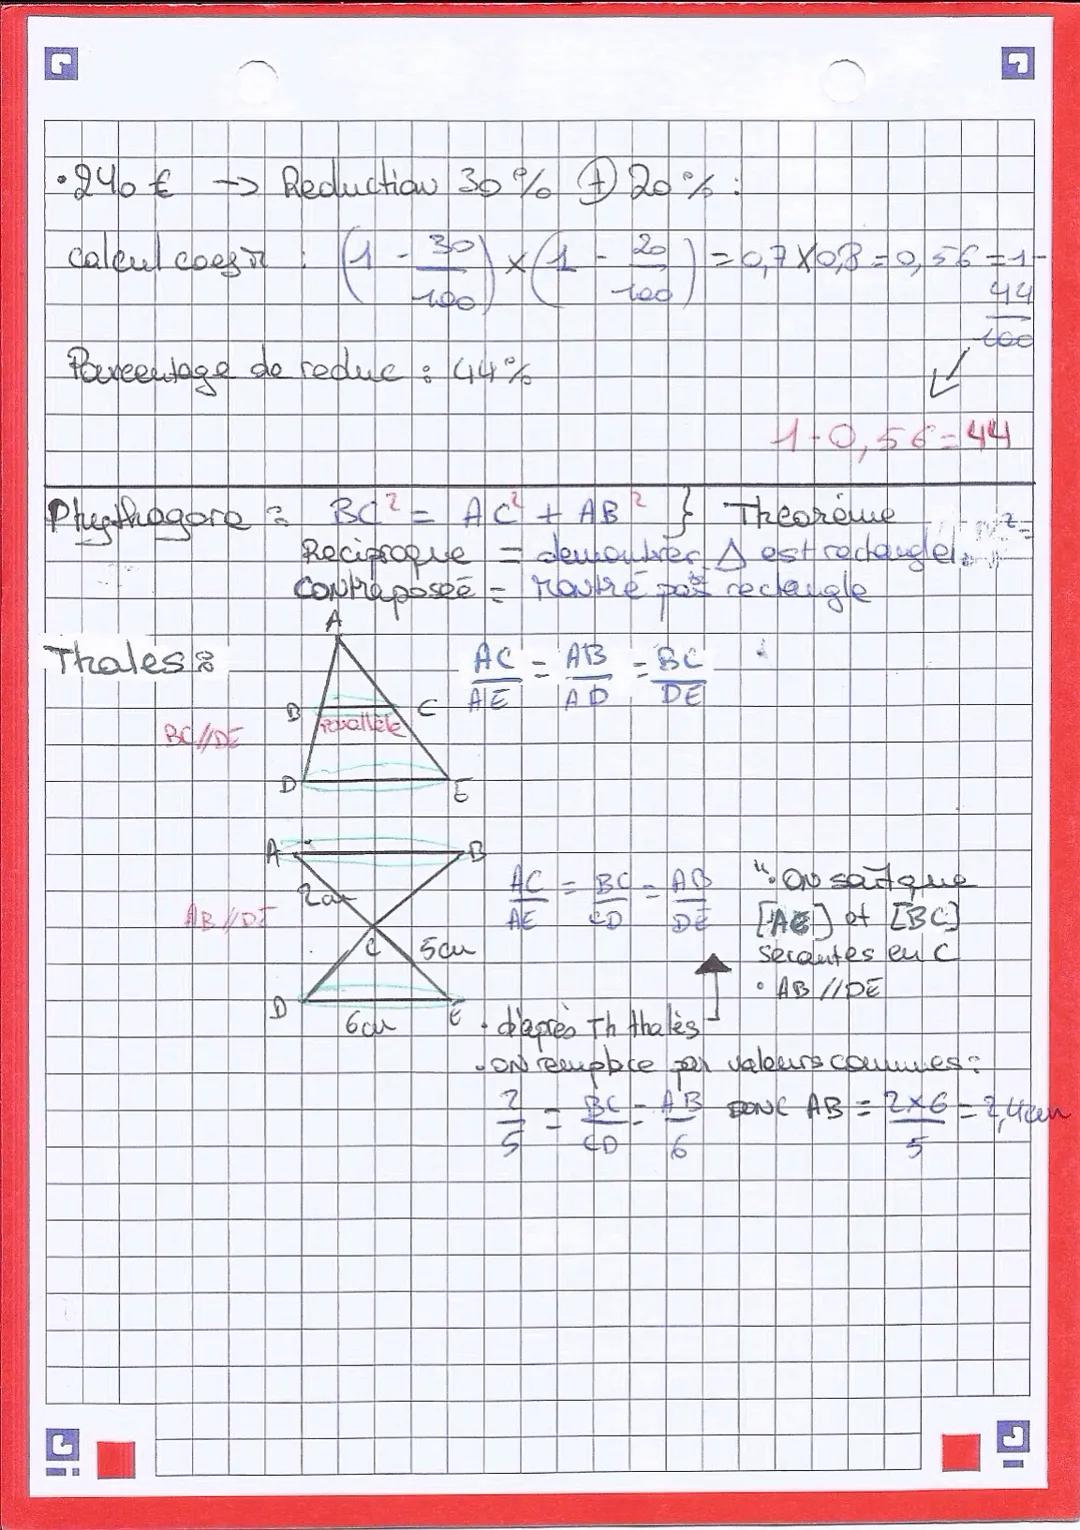 • 240 € → Reduction 30 % + 20 % :
calcul coeff : (1 - 30/100) × (1 - 20/100) = 0,7 X 0,8 = 0,56 = 1 - 44/100
Pourcentage de reduc : 44 %
1-0,56=44
Phythagore : BC² = AC² + AB² } Théorème
Reciproque = demontrer Δ est rectangle.
Contraposeé = Montre pas rectangle
Thales :
A
AC/AE = AB/AD = BC/DE
B C
parallèle
BC//DE
D E
A B
2cm
AB//DE
C 5cm
D E
6cm
AC/AE = BC/CD = AB/DE
". ON sait que
[AE] et [BC]
secantes en C
• AB //DE
• d'après Th thalès
. ON remplace par valeurs connues :
2/5 = BC/CD = AB/6 DONC AB = 2×6/5 = 2,4cm